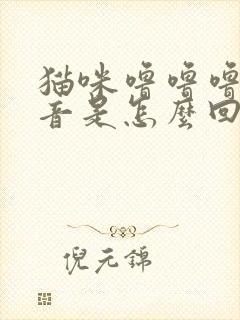 猫咪噜噜噜
音是怎麼回
倪元錦